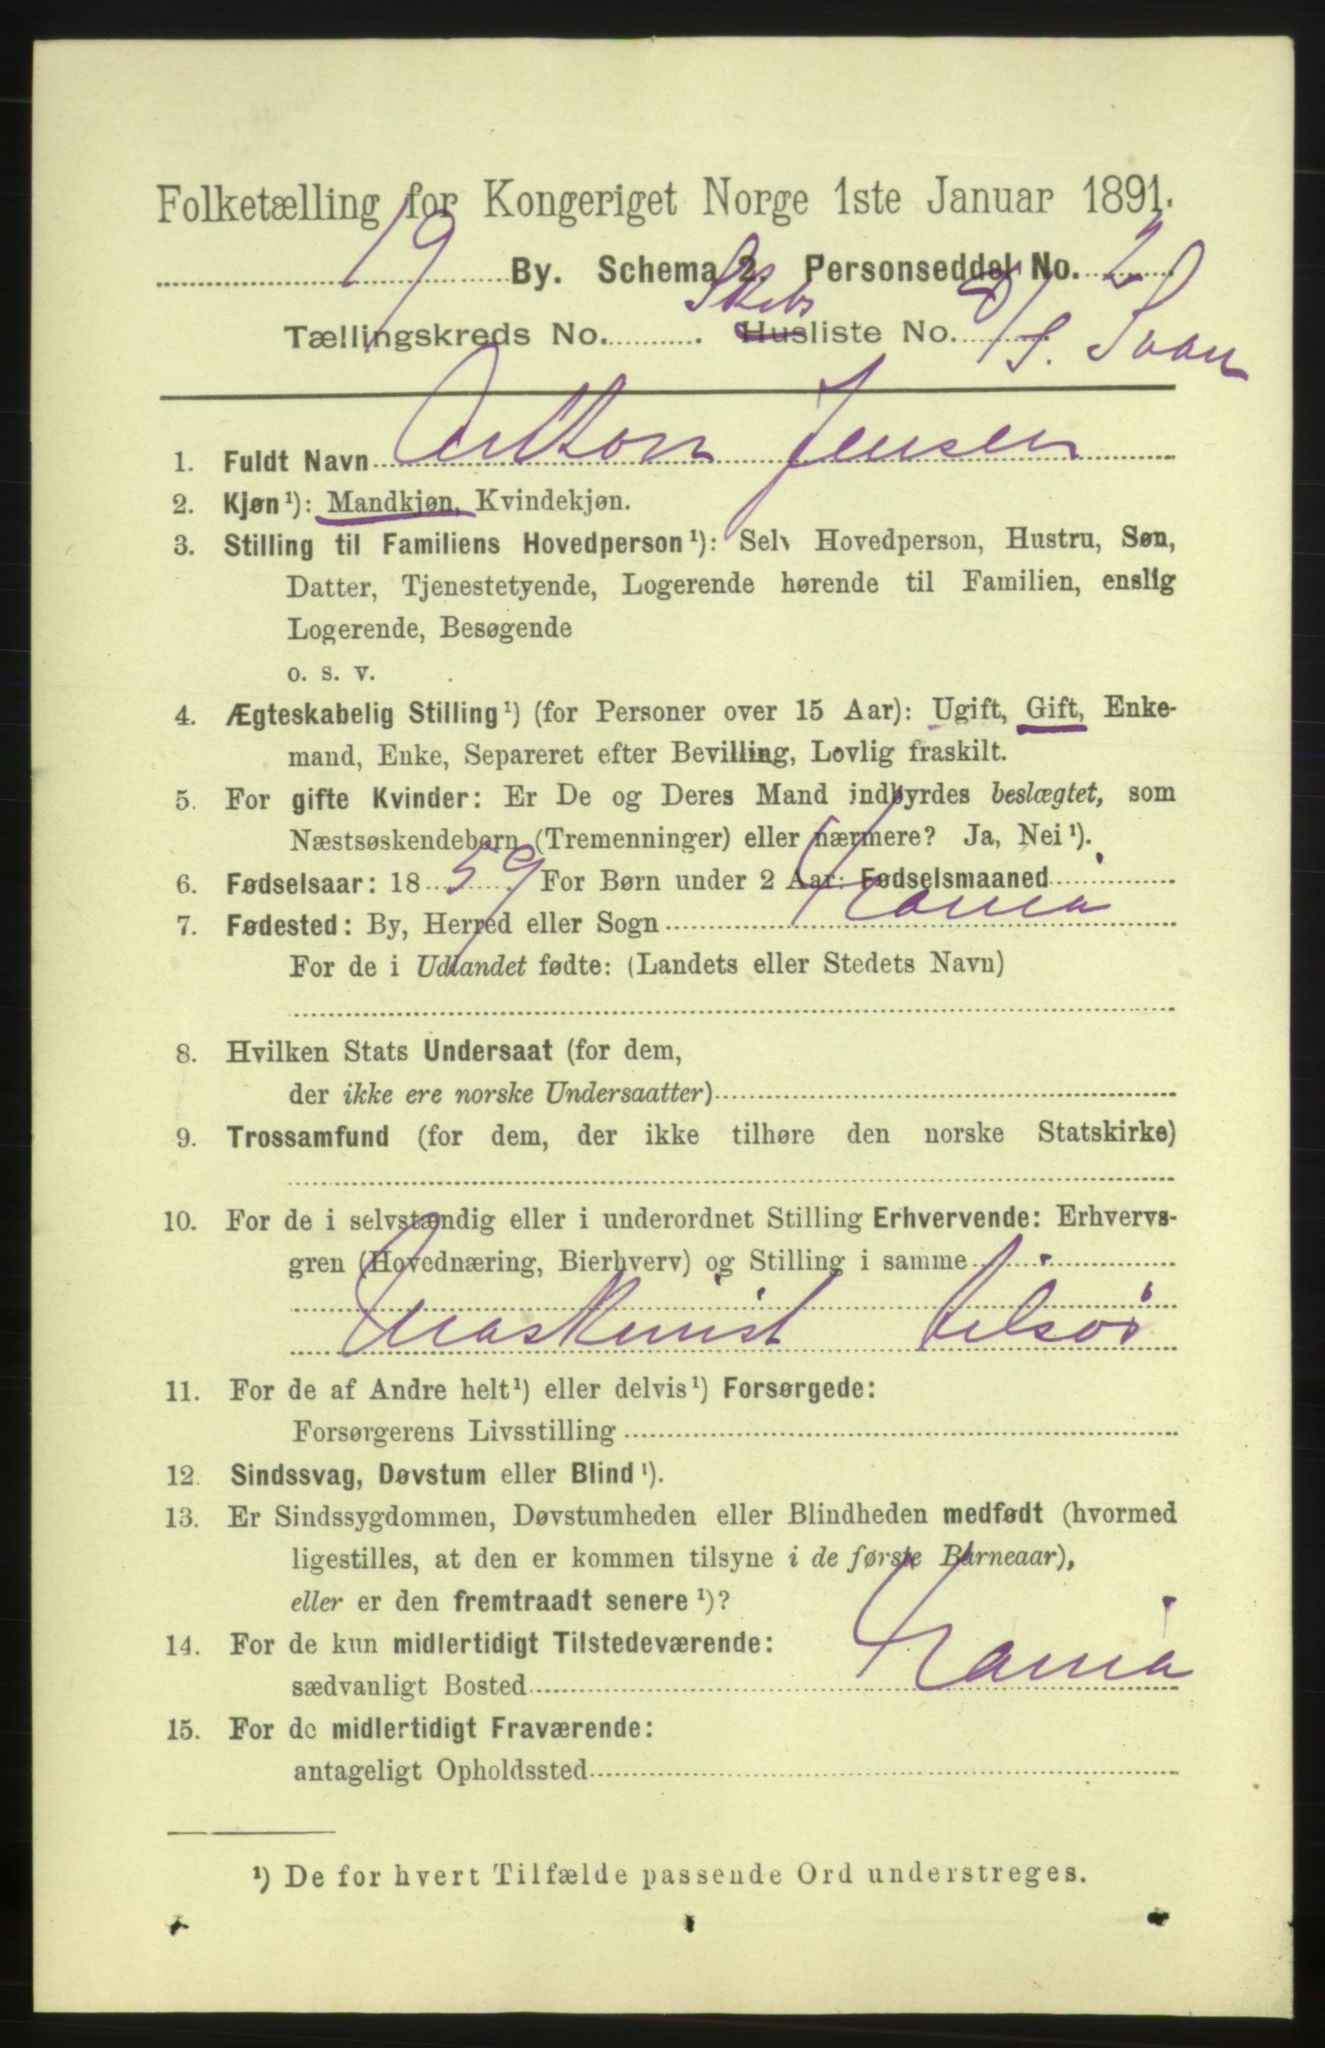 Folketælling for Kongeriget Norge 1ste Januar 1891.
19 By. Schema 2. Personseddel No. 2
Tællingskreds No. Skibs Husliste No. D/S. Svan
1. Fuldt Navn Anton Jensen
2. Kjøn¹): Mandkjøn, Kvindekjøn.
3. Stilling til Familiens Hovedperson¹): Selv Hovedperson, Hustru, Søn,
Datter, Tjenestetyende, Logerende hørende til Familien, enslig
Logerende, Besøgende
o. s. v.
4. Ægteskabelig Stilling¹) (for Personer over 15 Aar): Ugift, Gift, Enke-
mand, Enke, Separeret efter Bevilling, Lovlig fraskilt.
5. For gifte Kvinder: Er De og Deres Mand indbyrdes beslægtet, som
Næstsøskendebørn (Tremenninger) eller nærmere? Ja, Nei¹).
6. Fødselsaar: 1859. For Børn under 2 Aar: Fødselsmaaned
7. Fødested: By, Herred eller Sogn Xania
For de i Udlandet fødte: (Landets eller Stedets Navn)
8. Hvilken Stats Undersaat (for dem,
der ikke ere norske Undersaatter)
9. Trossamfund (for dem, der ikke tilhøre den norske Statskirke)
10. For de i selvstændig eller i underordnet Stilling Erhvervende: Erhvervs-
gren (Hovednæring, Bierhverv) og Stilling i samme
Maskinist tilsøs
11. For de af Andre helt¹) eller delvis¹) Forsørgede:
Forsørgerens Livsstilling
12. Sindssvag, Døvstum eller Blind¹).
13. Er Sindssygdommen, Døvstumheden eller Blindheden medfødt (hvormed
ligestilles, at den er kommen tilsyne i de første Barneaar),
eller er den fremtraadt senere¹)?
14. For de kun midlertidigt Tilstedeværende:
sædvanligt Bosted Xania
15. For de midlertidigt Fraværende:
antageligt Opholdssted
¹) De for hvert Tilfælde passende Ord understreges.